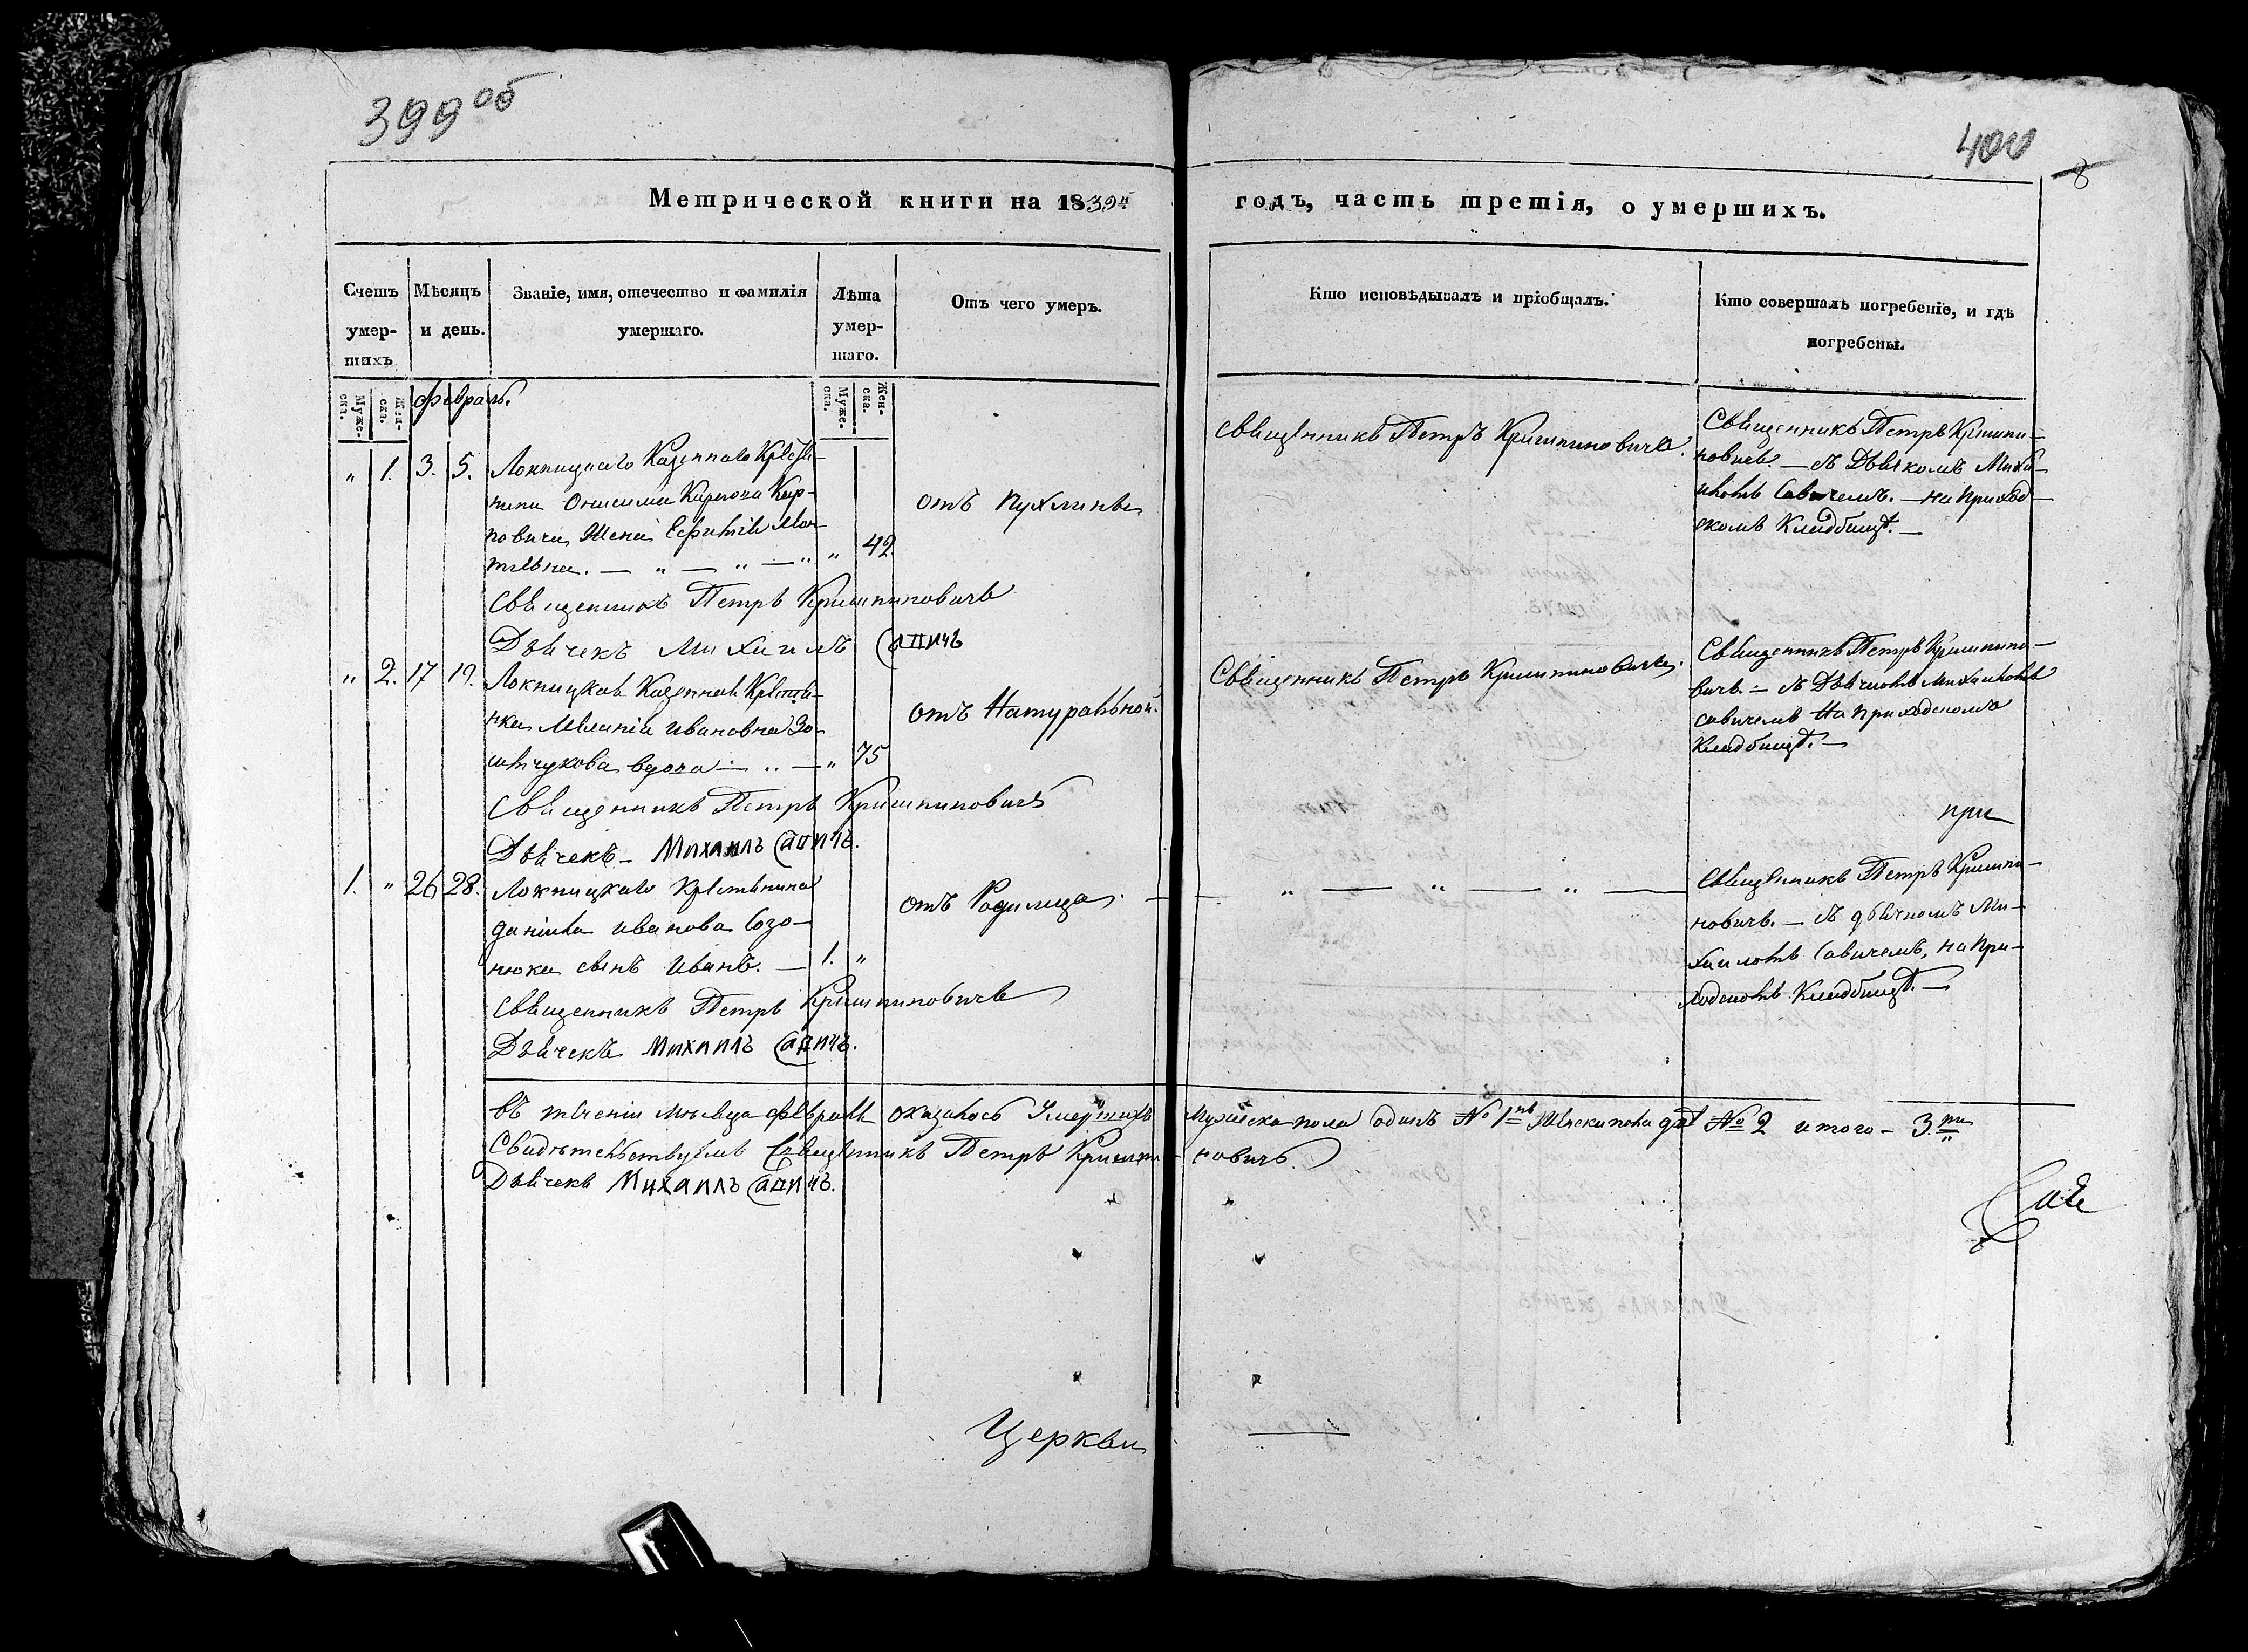 399 об
400
8
Метрической книги на 1839й
годъ, часть третія, о умершихъ.
Счетъ умер-
шихъ
Мѣсяцъ
и день.
Званіе, имя, отечество и фамилія
умершаго.
Лѣта
умер-
шаго.
Отъ чего умеръ.
Кто исповѣдывалъ и пріобщалъ.
Кто совершалъ погребеніе, и гдѣ
погребены.
Муже-
ска.
Жен-
ска.
Муже-
ска.
Жен-
ска.
февраль.
„ 1. 3. 5. Локницкаго Казеннаго Кресть-
янина Онисима Карпова Кар-
повича Жена Евфимія Мат-
твѣевна. — „ — „ — „ „ 42
отъ пухлины
Священникъ Петръ Кришпиновичъ.
Священникъ Петръ Кришпи-
новичъ. — съ Дьячкомъ Миха-
иломъ Савичемъ. — на приход-
скомъ Кладбищѣ. —
Священникъ Петръ Кришпиновичъ
Дьячекъ Михаилъ Савичъ
„ 2. 17 19. Локницкая Казенная Крестья-
нка Меланія Ивановна
вдова — „ — „ 75
отъ Натуральной.
Священникъ Петръ Кришпиновичъ.
Священникъ Петръ Кришпино-
вичъ. — съ Дьячкомъ Михаиломъ
Савичемъ На приходскомъ
Кладбищѣ. —
Священникъ Петръ Кришпиновичъ
Дьячекъ — Михаилъ Савичъ.
при
1. „ 26 28. Локницкаго Крестьянина
Даніила Иванова Созо-
нюка сынъ Иванъ. — 1. „
отъ Родимца. —
— „ — „ — „ —
Священникъ Петръ Кришпи-
новичъ. — съ дьячкомъ Ми-
хаиломъ Савичемъ, на при-
ходскомъ Кладбищѣ. —
Священникъ Петръ Кришпиновичъ
Дьячекъ Михаилъ Савичъ.
Въ теченіи мѣсяца февраля оказалось Умершихъ Мужеска пола одинъ № 1нъ Женска пола двѣ № 2 итого — 3.ри
Свидѣтельствуемъ Священникъ Петръ Кришпиновичъ.
Дьячекъ Михаилъ Савичъ.
Церкви